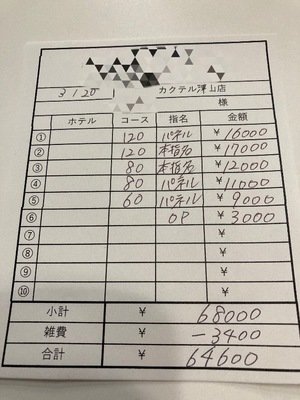 3/20 カクテル澤山店
様
ホテル コース 指名 金額
① 120 パネル ¥16000
② 120 本指名 ¥17000
③ 80 本指名 ¥12000
④ 80 パネル ¥11000
⑤ 60 パネル ¥9000
⑥ OP ¥3000
⑦ ¥
⑧ ¥
⑨ ¥
⑩ ¥
小計 ¥ 68000
雑費 ¥ -3400
合計 ¥ 64600